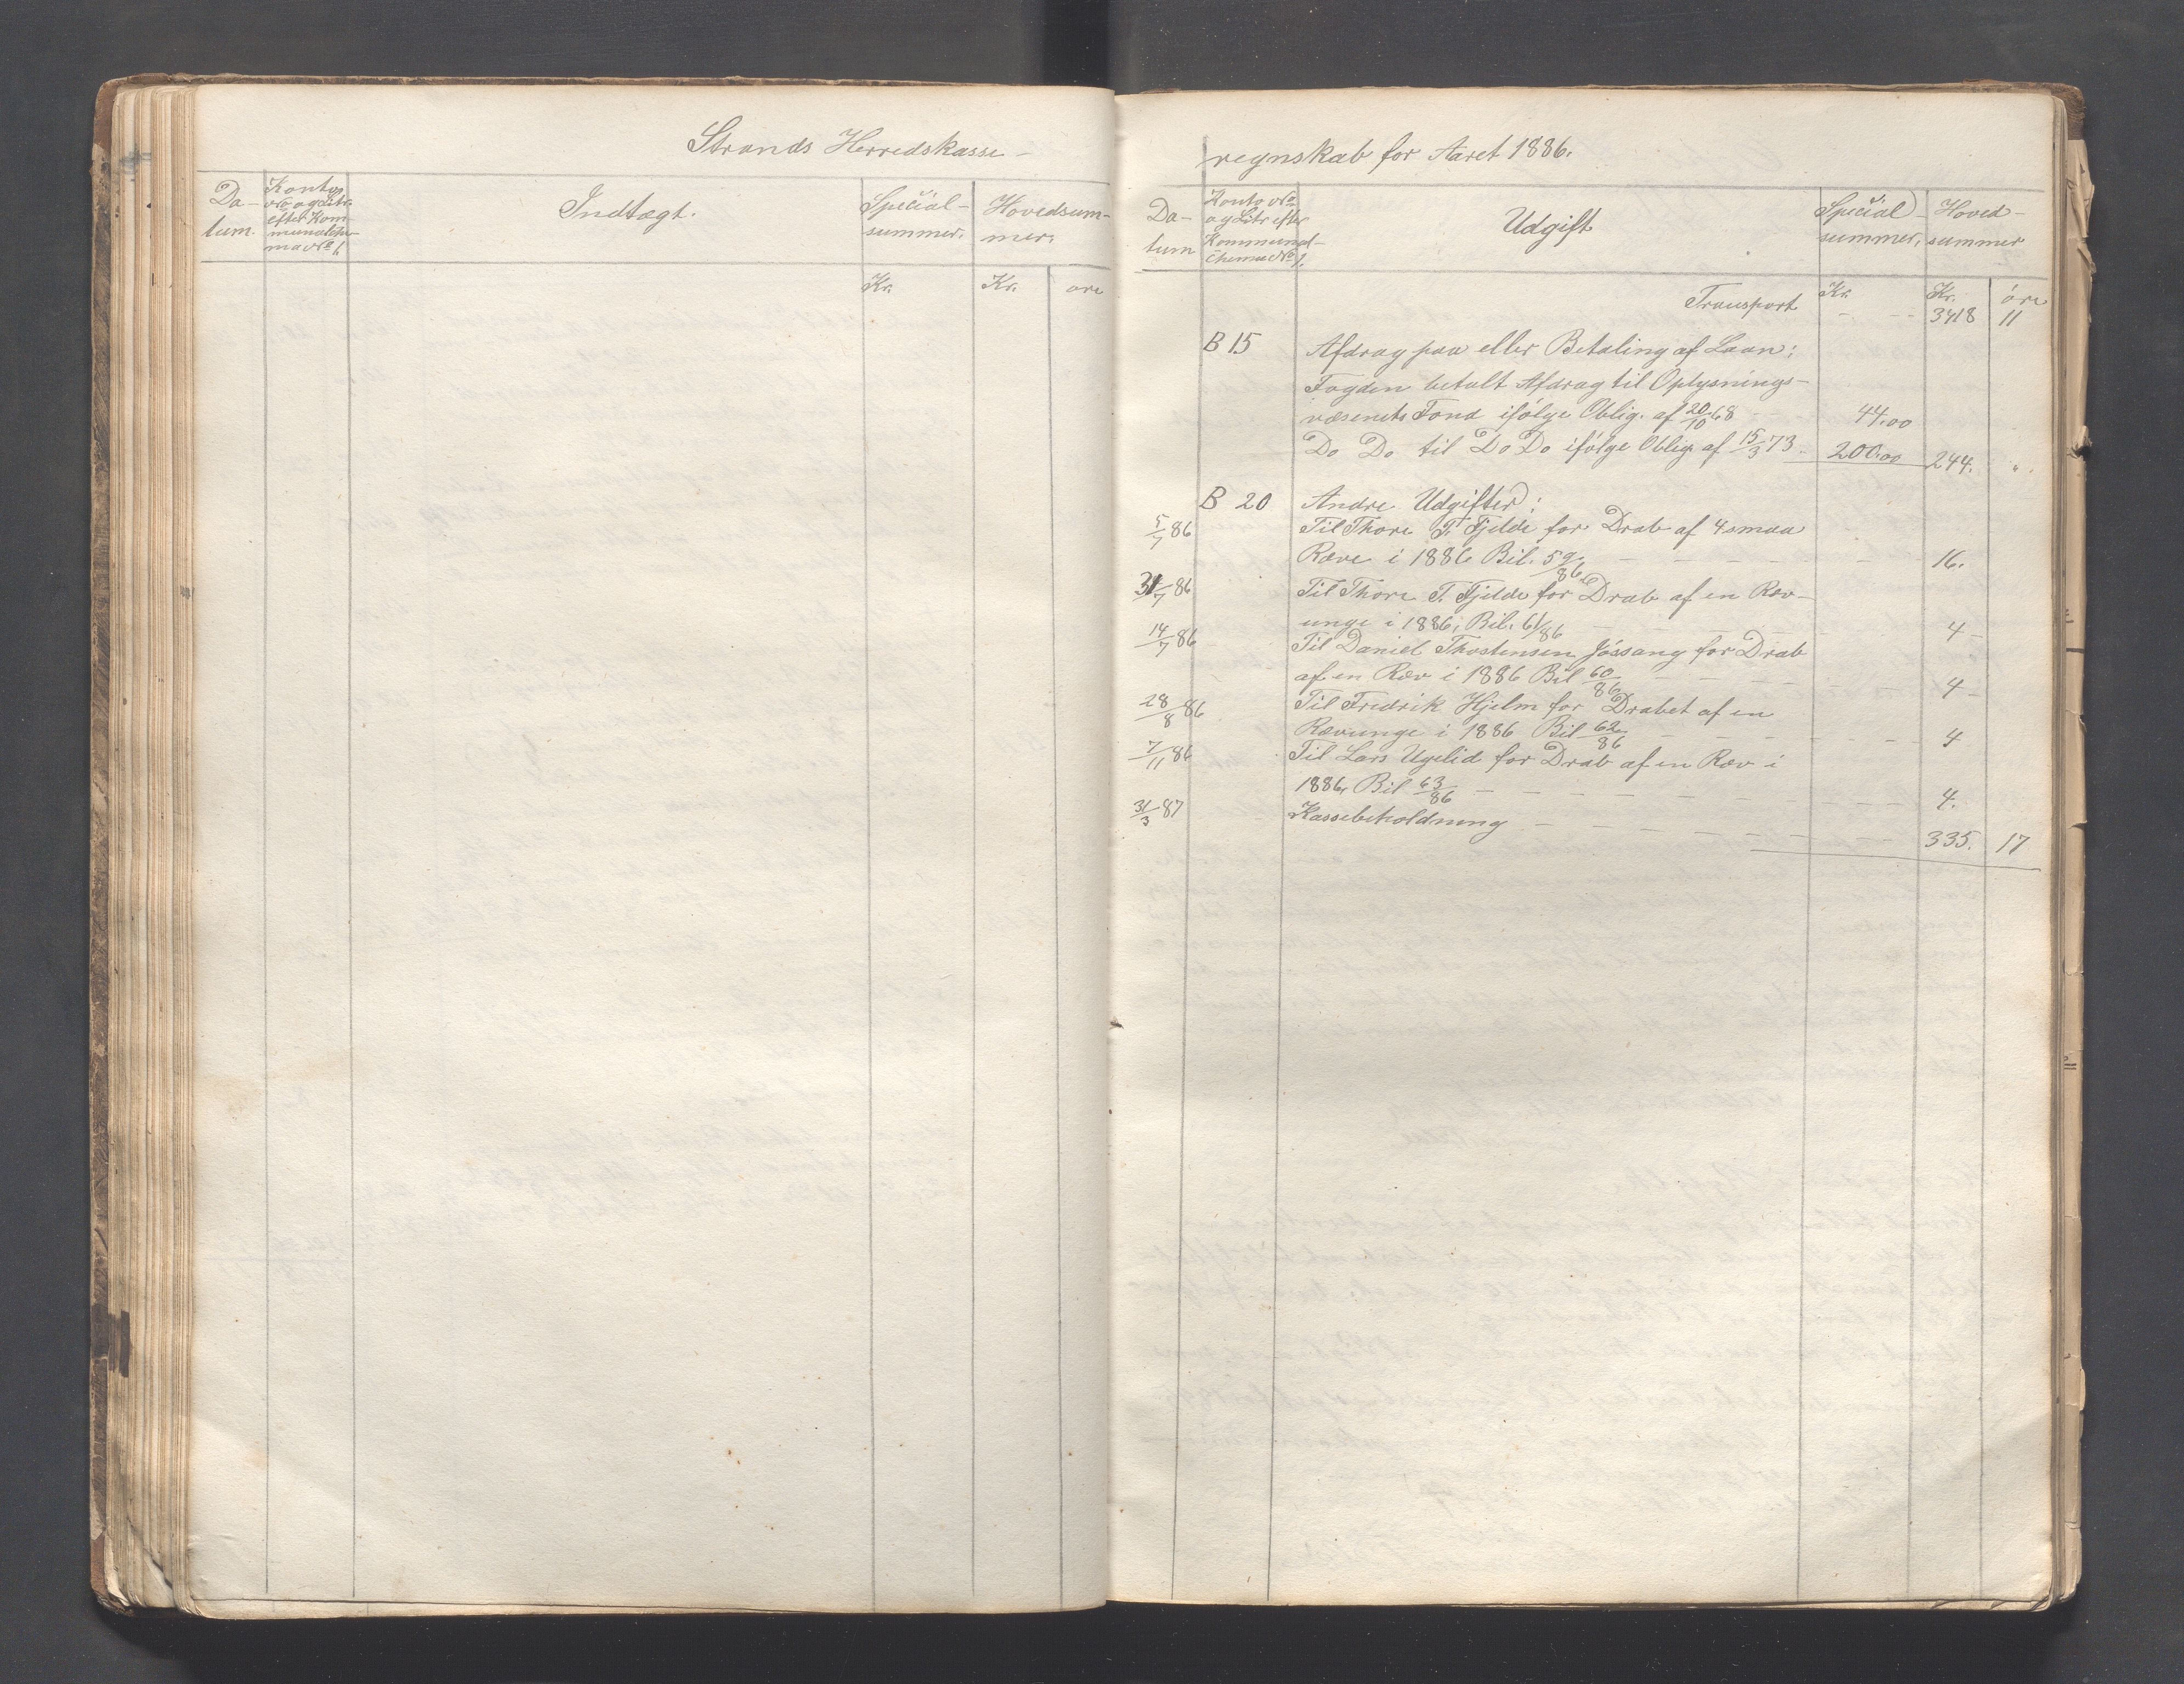 Strands Herredskasse-
Da-
tum.
Kontos
No og Litr.
efter Kom-
munalche-
ma No 1.
Indtægt.
Special-
summer.
Hovedsum-
mer.
Kr.
Kr.
øre
regnskab for Aaret 1886.
Da-
tum
Konto No
og Litr efter
Kommunal-
chema No 1.
Udgift
Special-
summer,
Hoved-
summer
Transport
Kr.
Kr.
øre
3418 11
B 15 Afdrag paa eller Betaling af Laan:
Fogden betalt Afdrag til Oplysnings-
væsenets Fond ifølge Oblig. af 20/10 68 44.00
Do Do til Do Do ifølge Oblig. af 15/3 73 - 200.00 244. "
B 20 Andre Udgifter:
5/7 86 Til Thore T. Fjelde for Drab af 4 smaa
Ræve i 1886 Bil. 59/86 - - - - - 16.
31/7 86 Til Thore T. Fjelde for Drab af en Ræv-
unge i 1886, Bil. 61/86 - - - - 4 -
14/7 86 Til Daniel Thostensen Jøssang for Drab
af en Ræv i 1886 Bil 60/86 - - - - 4 -
28/8 86 Til Fredrik Hjelm for Drabet af en
Rævunge i 1886 Bil 62/86 - - - - 4
7/11 86 Til Lars Ugelid for Drab af en Ræv i
1886, Bil 63/86 - - - - - 4.
31/3 87 Kassebeholdning - - - - - 335. 17